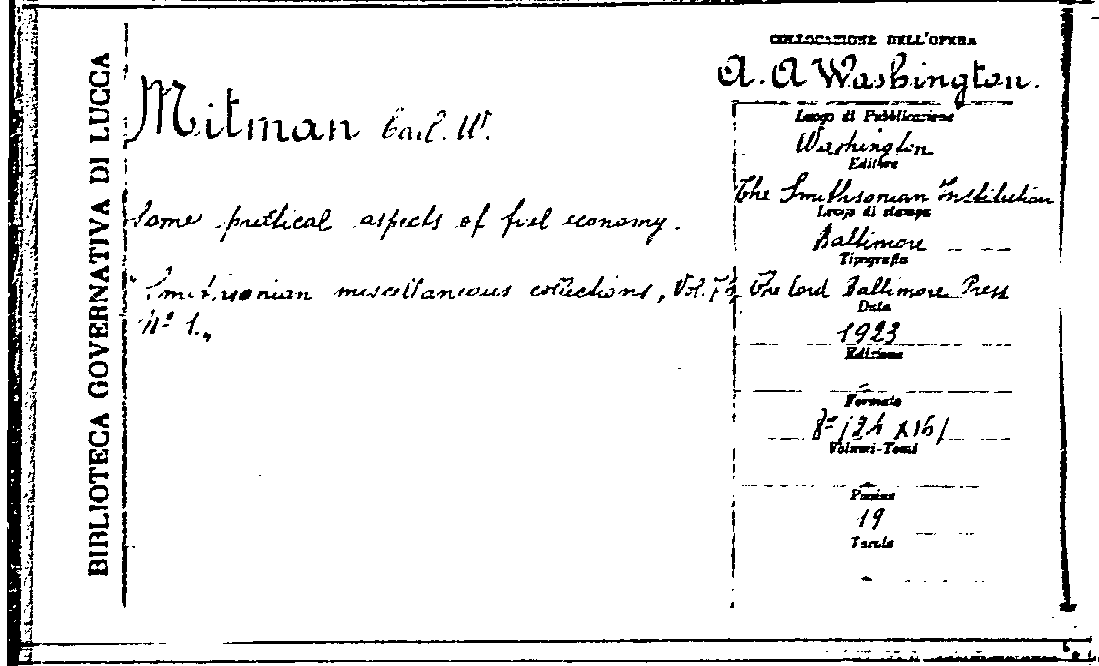 BIBLIOTECA GOVERNATIVA DI LUCCA
Mitman Carl. W.
Some pratical aspects of fuel economy.
"Smithsonian miscellaneous collections, Vol.
Nº 1.„
COLLOCAZIONE DELL'OPERA
A. A Washington.
Luogo di Pubblicazione
Washington
Editore
The Smithsonian Institution
Luogo di stampa
Baltimore
Tipografia
The Lord Baltimore Press
Data
1923
Edizione
Formato
8º (24 x 16)
Volumi-Tomi
Pagine
19
Tavole